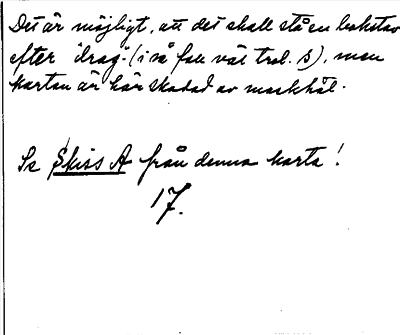 Det är möjligt, att det skall stå en bokstav
efter "drag" (i så fall väl trol. s), men
kartan är här skadad av maskhål.
Se Skiss A från denna karta!
17.